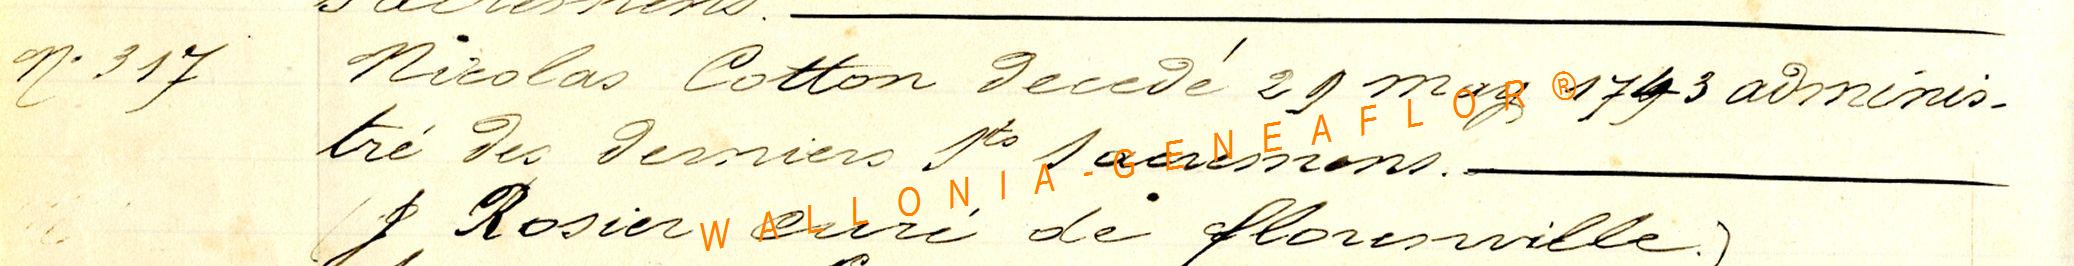 Sacremens.
N. 317 Nicolas Cotton decedé 29 may 1743 adminis-
tré des derniers Sts Sacremens.
(J Rosier curé de florenville.)
WALLONIA-GENEAFLOR®